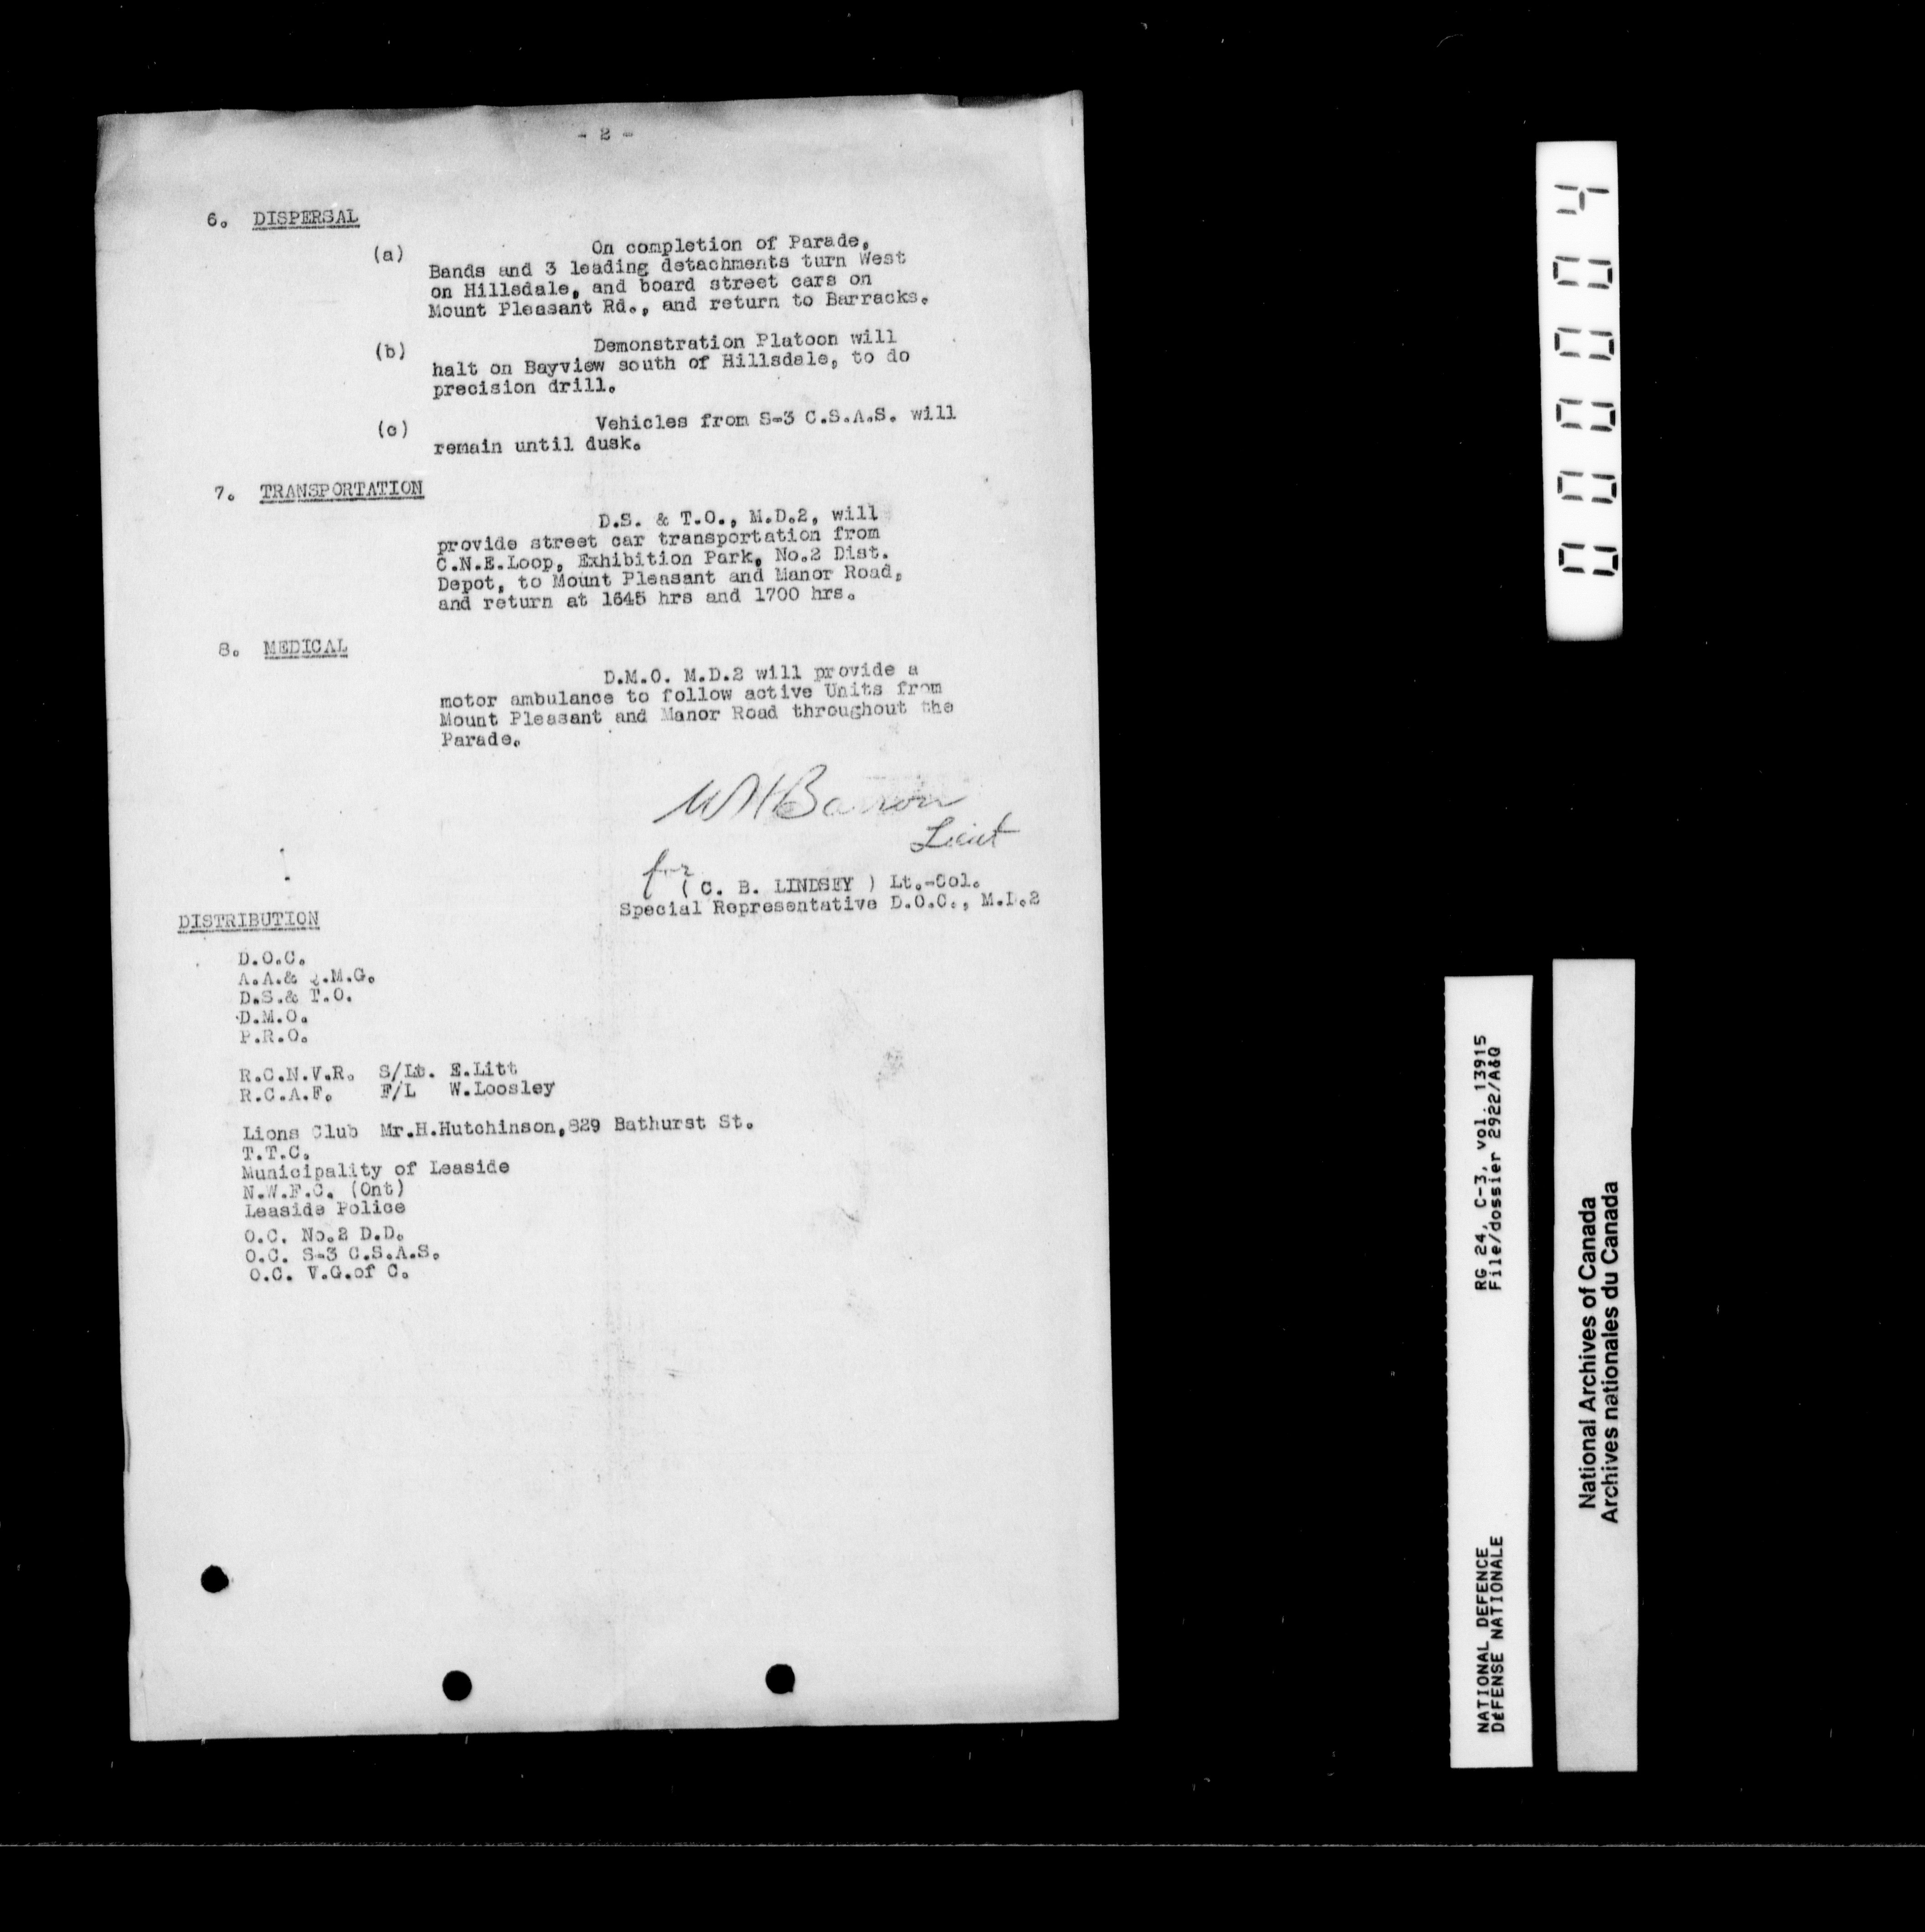 - 2 -
6. DISPERSAL
(a) On completion of Parade,
Bands and 3 leading detachments turn West
on Hillsdale, and board street cars on
Mount Pleasant Rd., and return to Barracks.
(b) Demonstration Platoon will
halt on Bayview south of Hillsdale, to do
precision drill.
(c) Vehicles from S-3 C.S.A.S. will
remain until dusk.
7. TRANSPORTATION
D.S. & T.O., M.D.2, will
provide street car transportation from
C.N.E.Loop, Exhibition Park, No.2 Dist.
Depot, to Mount Pleasant and Manor Road,
and return at 1645 hrs and 1700 hrs.
8. MEDICAL
D.M.O. M.D.2 will provide a
motor ambulance to follow active Units from
Mount Pleasant and Manor Road throughout the
Parade.
WH Barron
Lieut
for
( C. B. LINDSEY ) Lt.-Col.
Special Representative D.O.C., M.D.2
DISTRIBUTION
D.O.C.
A.A.& Q.M.G.
D.S.& T.O.
D.M.O.
P.R.O.
R.C.N.V.R. S/Lt. E.Litt
R.C.A.F. F/L W.Loosley
Lions Club Mr.H.Hutchinson,829 Bathurst St.
T.T.C.
Municipality of Leaside
N.W.F.C. (Ont)
Leaside Police
O.C. No.2 D.D.
O.C. S-3 C.S.A.S.
O.C. V.G.of C.
000004
RG 24, C-3, vol. 13915
File/dossier 2922/A&Q
NATIONAL DEFENCE
DÉFENSE NATIONALE
National Archives of Canada
Archives nationales du Canada